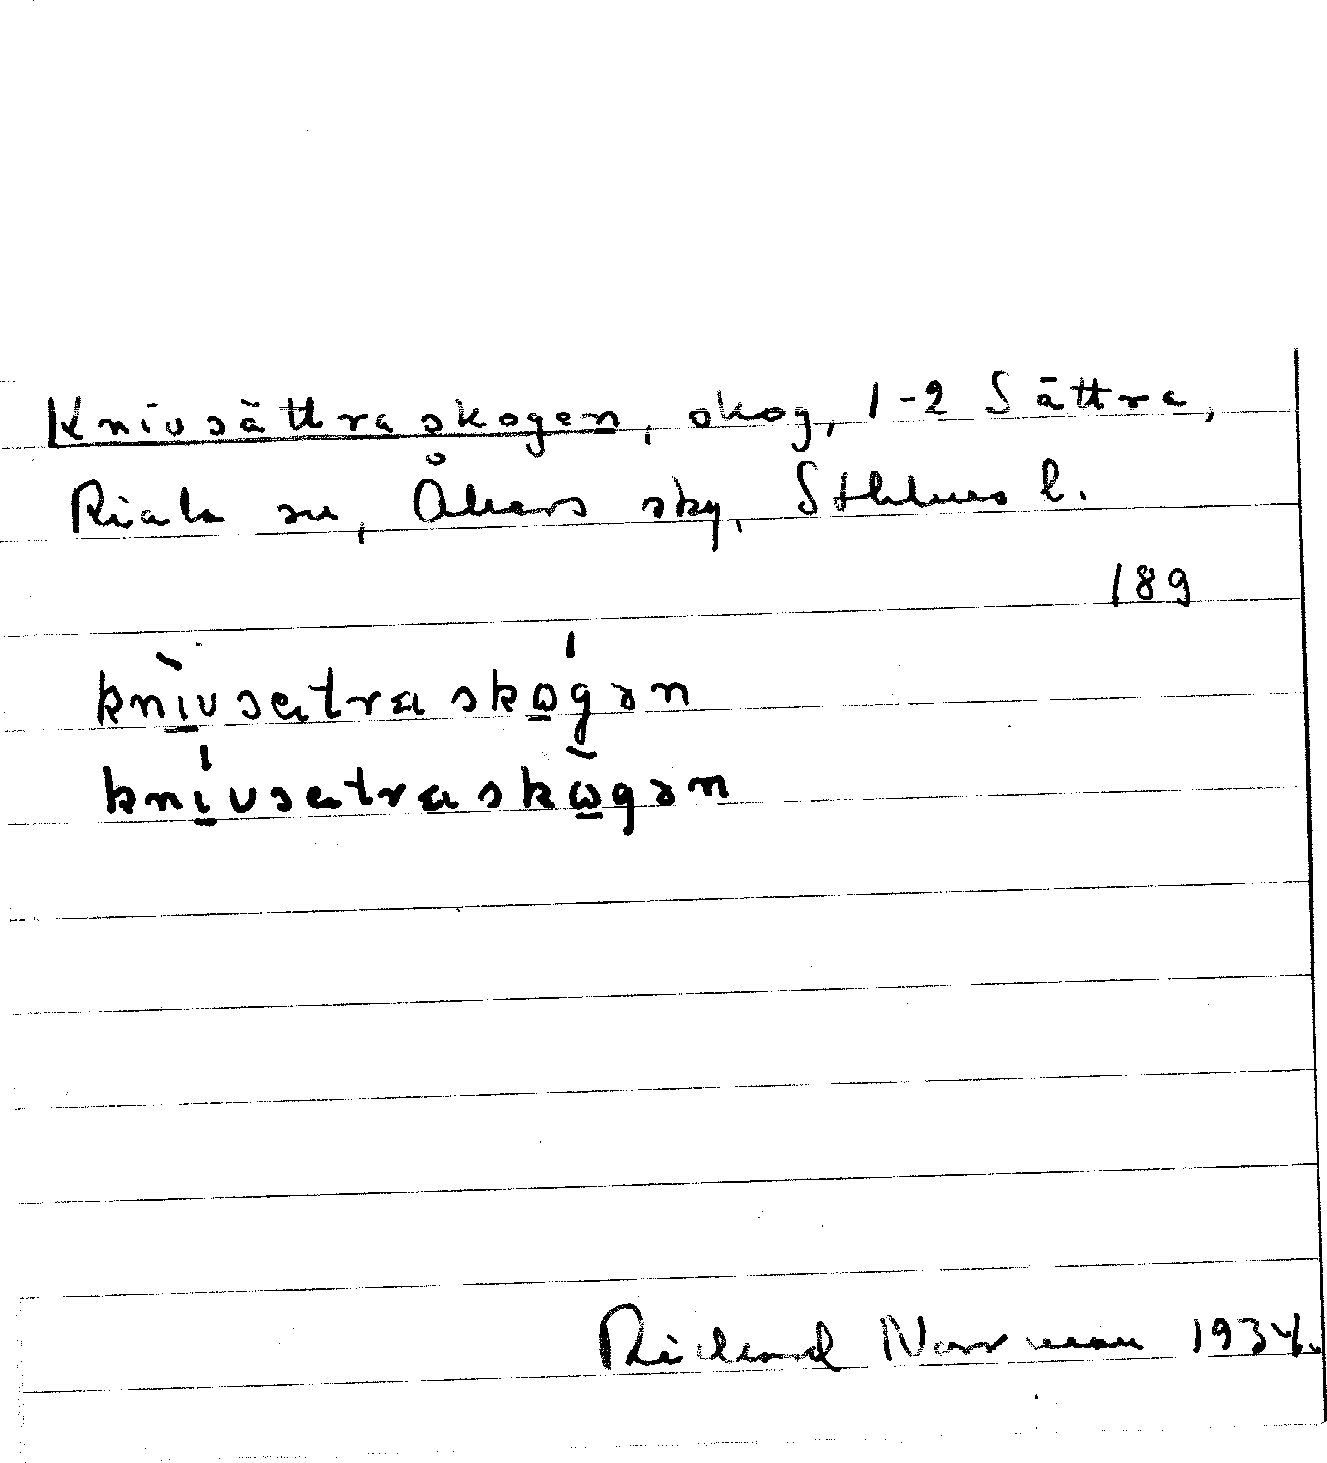 Knivsättraskogen, skog, 1-2 Sättra,
Riala sn, Åkers skg, Sthlms l.
189
knìvsætraskógən
knívsætraskògən
Richard Norrman 1934.